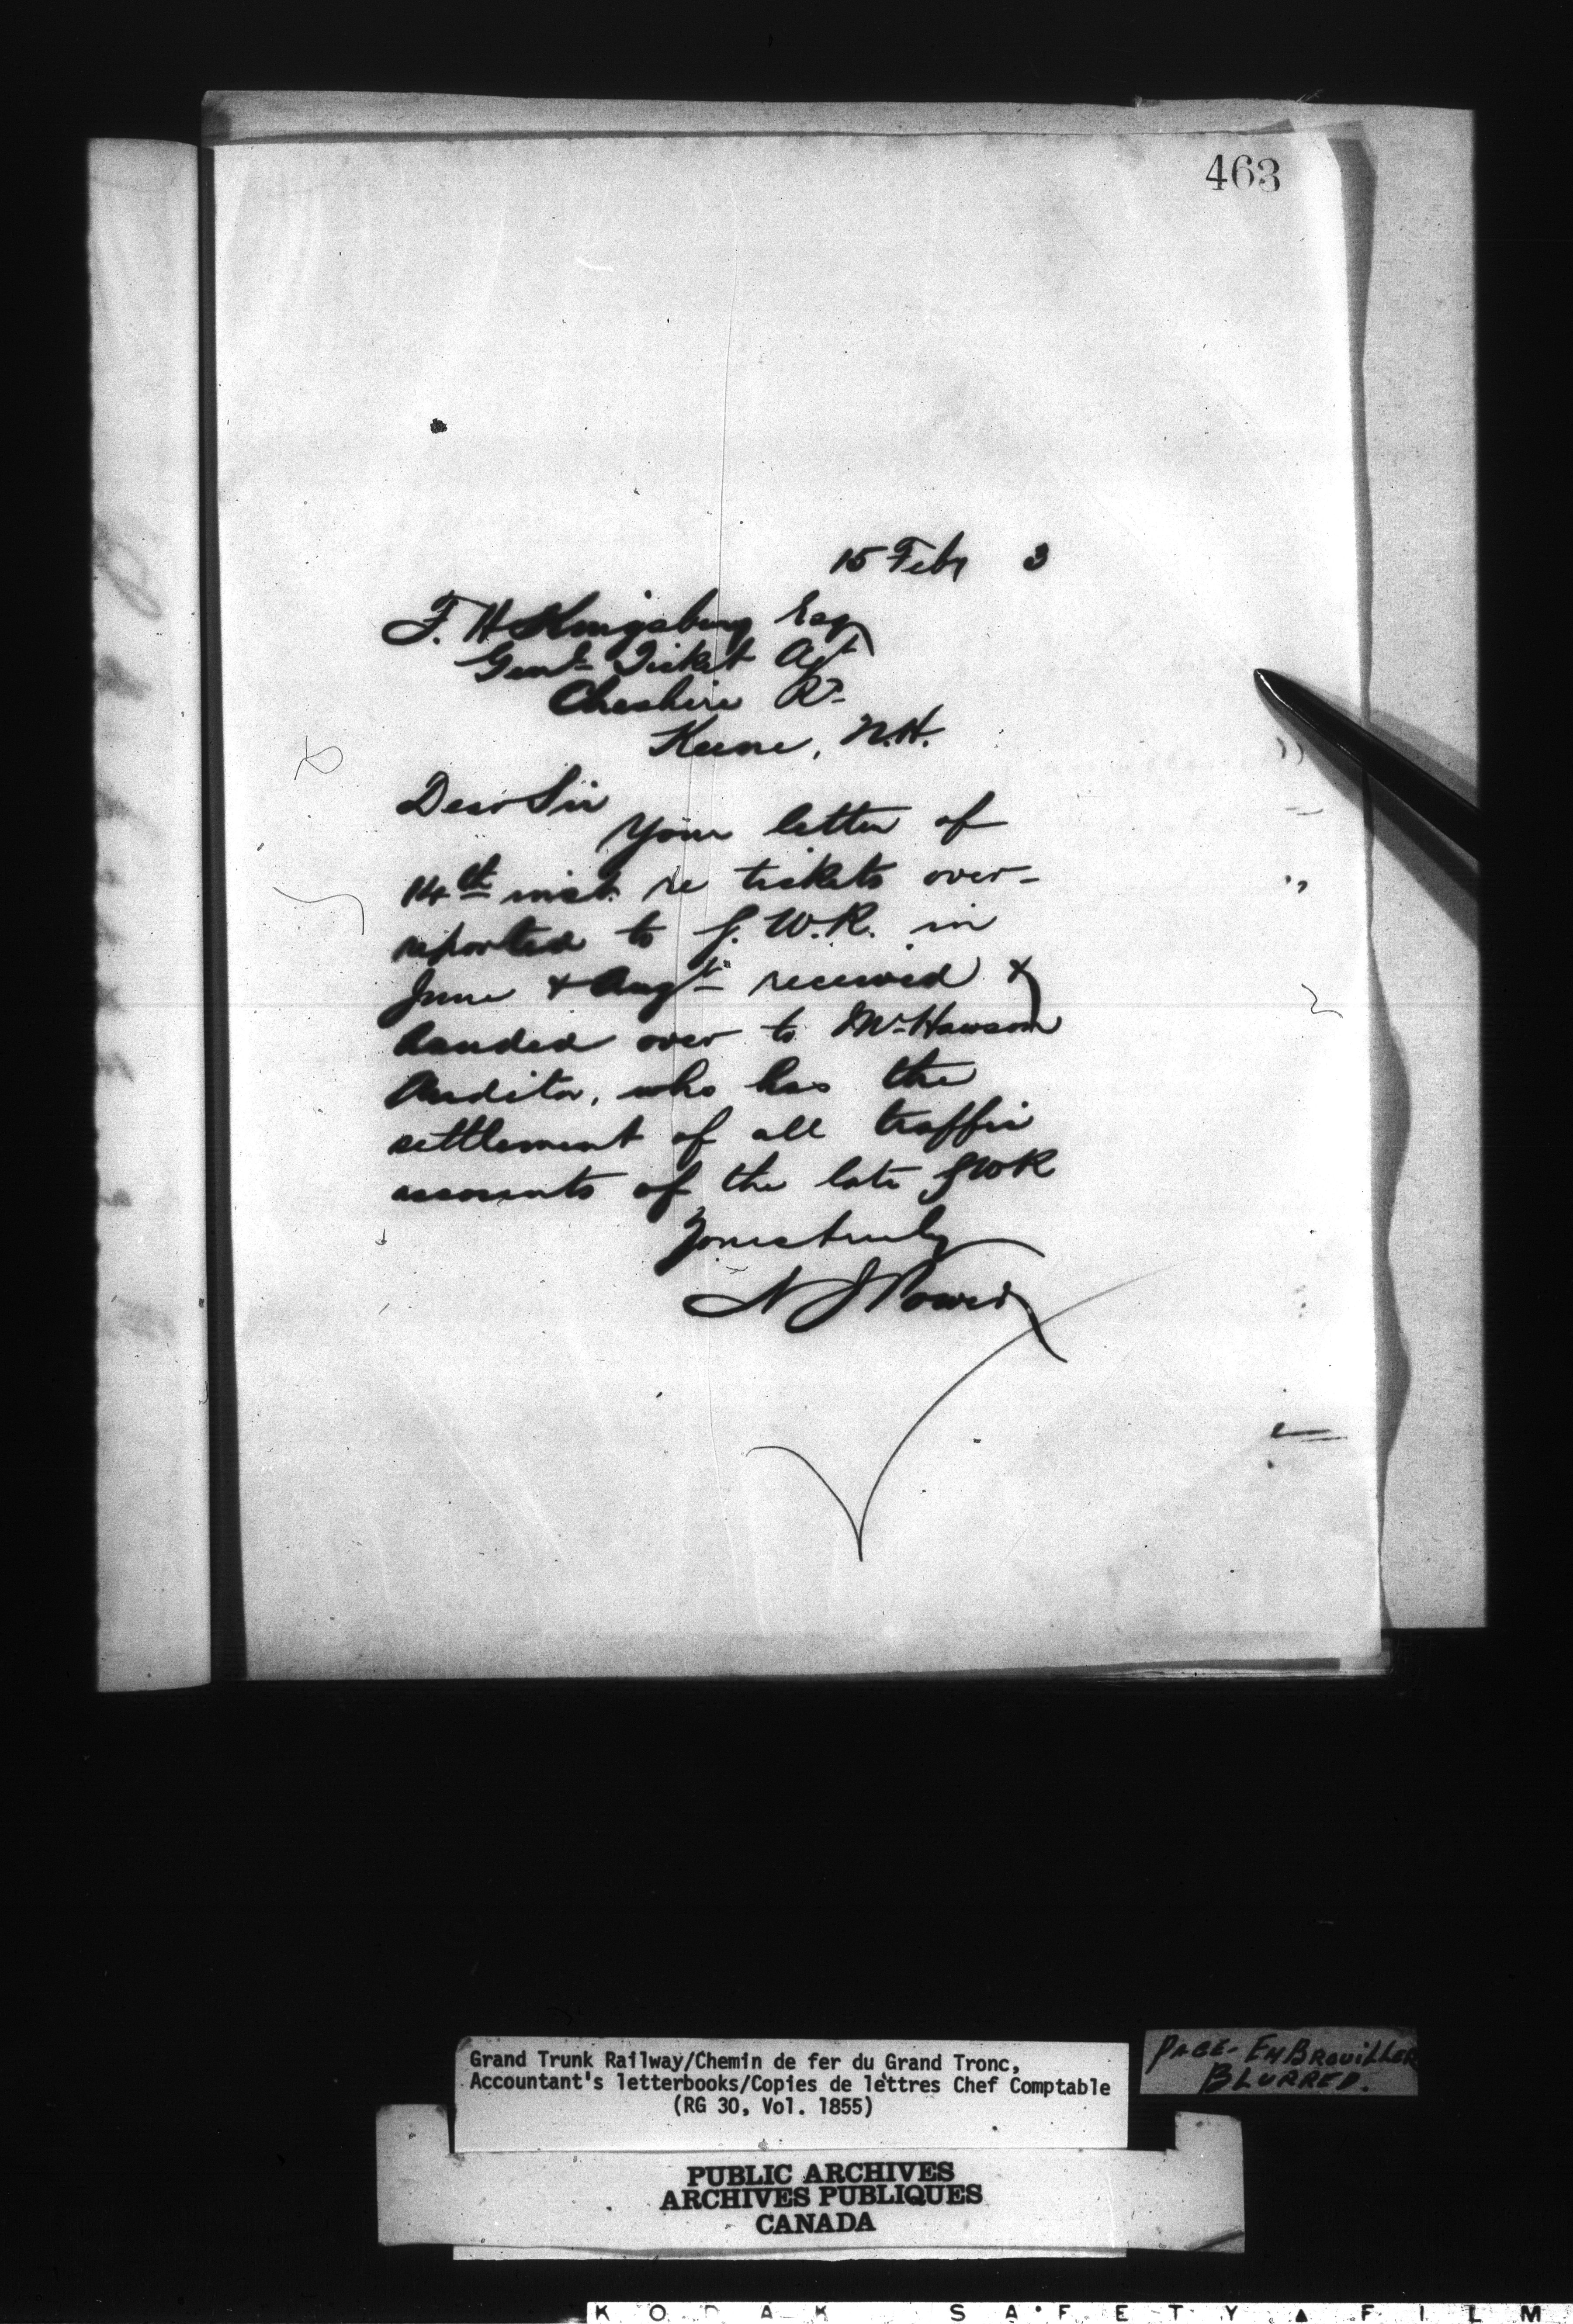 463
15 Feby 3
F. H Kingsbury Esq
Genl Ticket Agt
Cheshire Rd
Keene, N.H.
Dear Sir
Your letter of
14th inst. re tickets over-
reported to G. W. R. in
June & Augt received &
handed over to Mr Hawson
Auditor, who has the
settlement of all traffic
accounts of the late GWR
Yours truly
N J Power
Grand Trunk Railway/Chemin de fer du Grand Tronc,
Accountant's letterbooks/Copies de lettres Chef Comptable
(RG 30, Vol. 1855)
PAGE - EMBROUILLER
BLURRED.
PUBLIC ARCHIVES
ARCHIVES PUBLIQUES
CANADA
KODAK SAFETY ▲ FILM